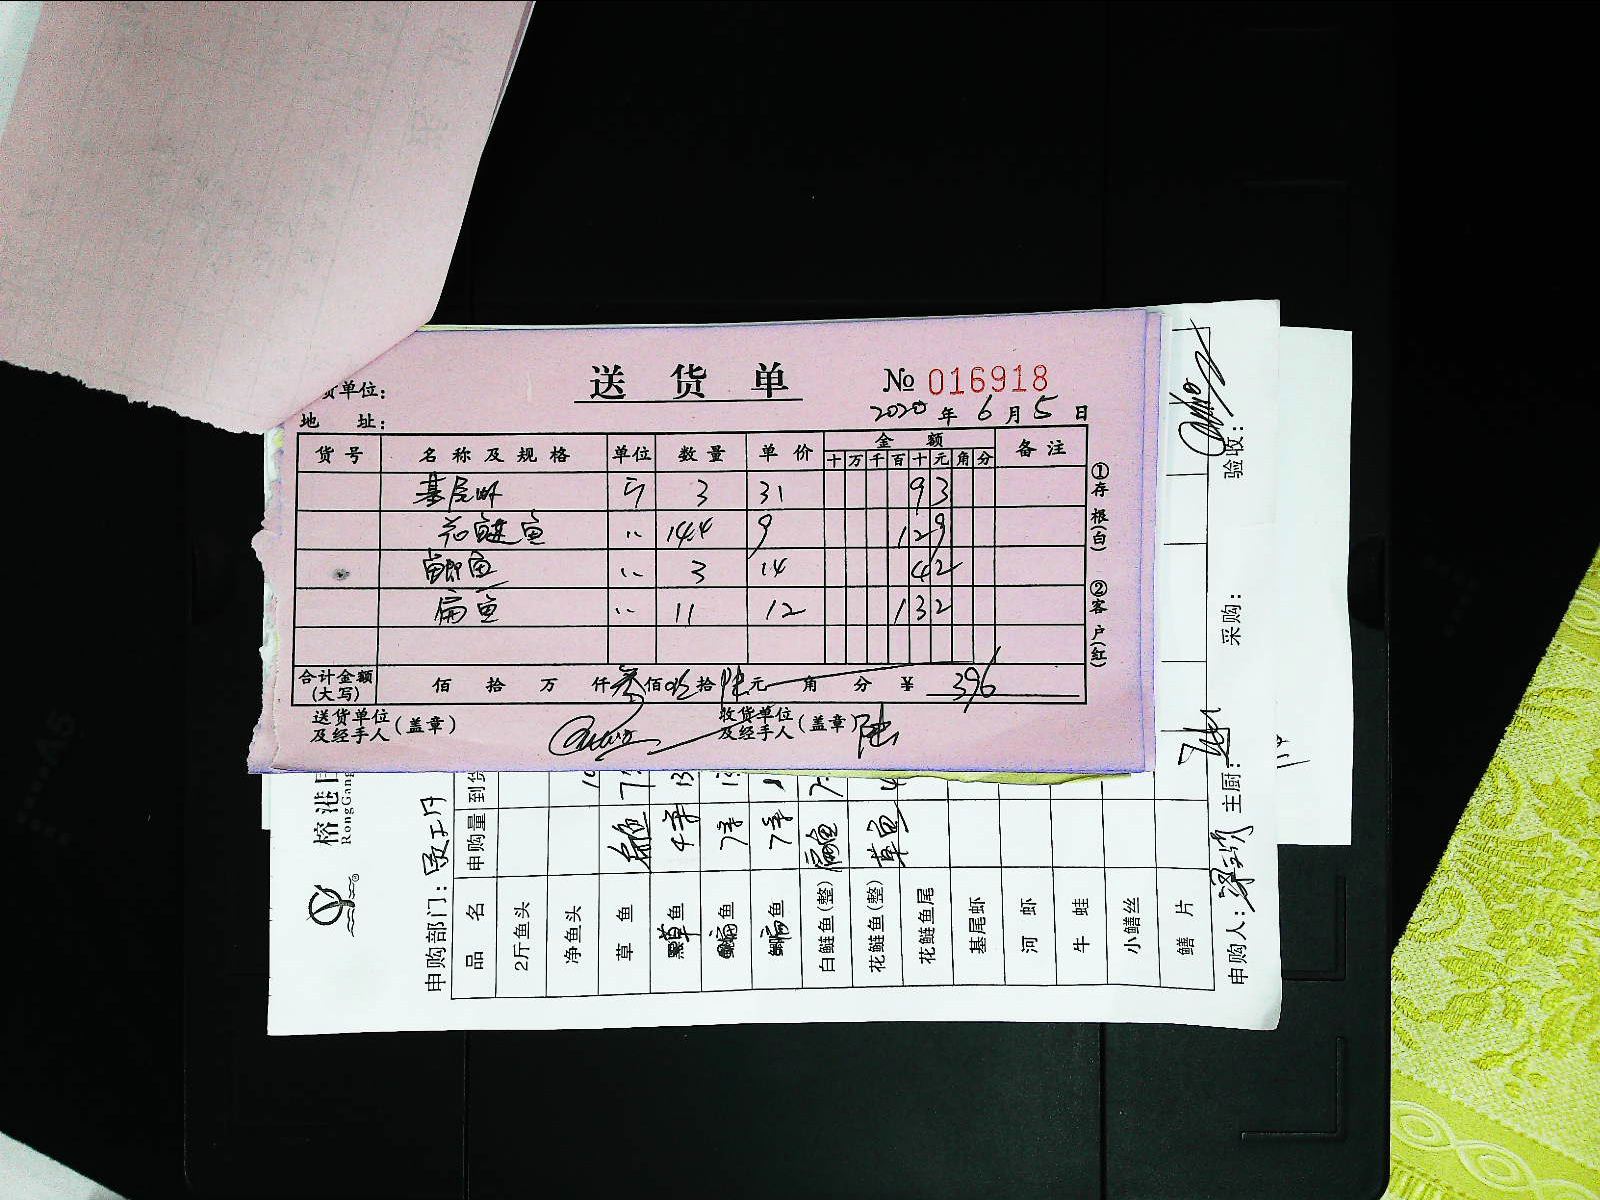 送货单 № 016918
货单位：
地 址： 2020 年 6 月 5 日
货号 名称及规格 单位 数量 单价 金额 备注
十 万 千 百 十 元 角 分
基尾虾 斤 3 31 93
花鲢鱼 〃 14.4 9 129
鲫鱼 〃 3 14 42
扁鱼 〃 11 12 132
合计金额(大写) 佰 拾 万 仟 叁佰 玖拾 陆元 角 分 ¥ 396
送货单位及经手人(盖章) 收货单位及经手人(盖章) 陆
①存根(白) ②客户(红)
榕港
RongGang
申购部门：
品名 申购量 到货
2斤鱼头
净鱼头
草鱼
草鱼 4条
鱼 7条
扁鱼 7条
白鲢鱼(整) 扁鱼
花鲢鱼(整) 草鱼
花鲢鱼尾
基尾虾
河虾
牛蛙
小鳝丝
鳝片
申购人： 主厨： 采购： 验收：